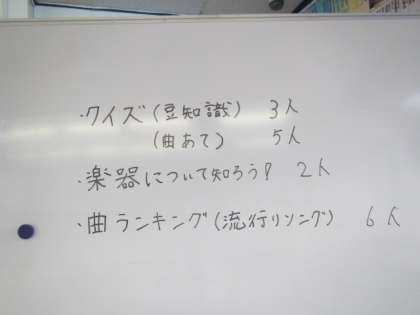 ・クイズ(豆知識) 3人
(曲あて) 5人
・楽器について知ろう? 2人
・曲ランキング(流行りソング) 6人